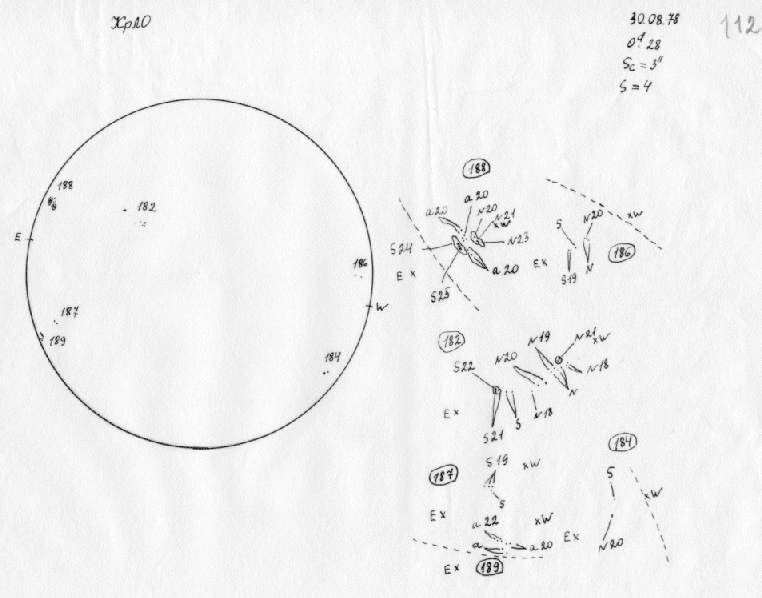 КрАО
30.08.78
112
0ч.28
Sc = 3"
S = 4
188
182
E
186
W
187
189
184
188
a 20
a 20
N20
N21
xW
S24
N23
E x
a 20
S25
N20
xW
S
186
E x
S19
N
182
N19
N21
xW
N20
N18
S22
N
E x
S21
S
N18
184
S19
xW
S
187
xW
S
E x
a 22
xW
a
a 20
E x
N20
E x
189